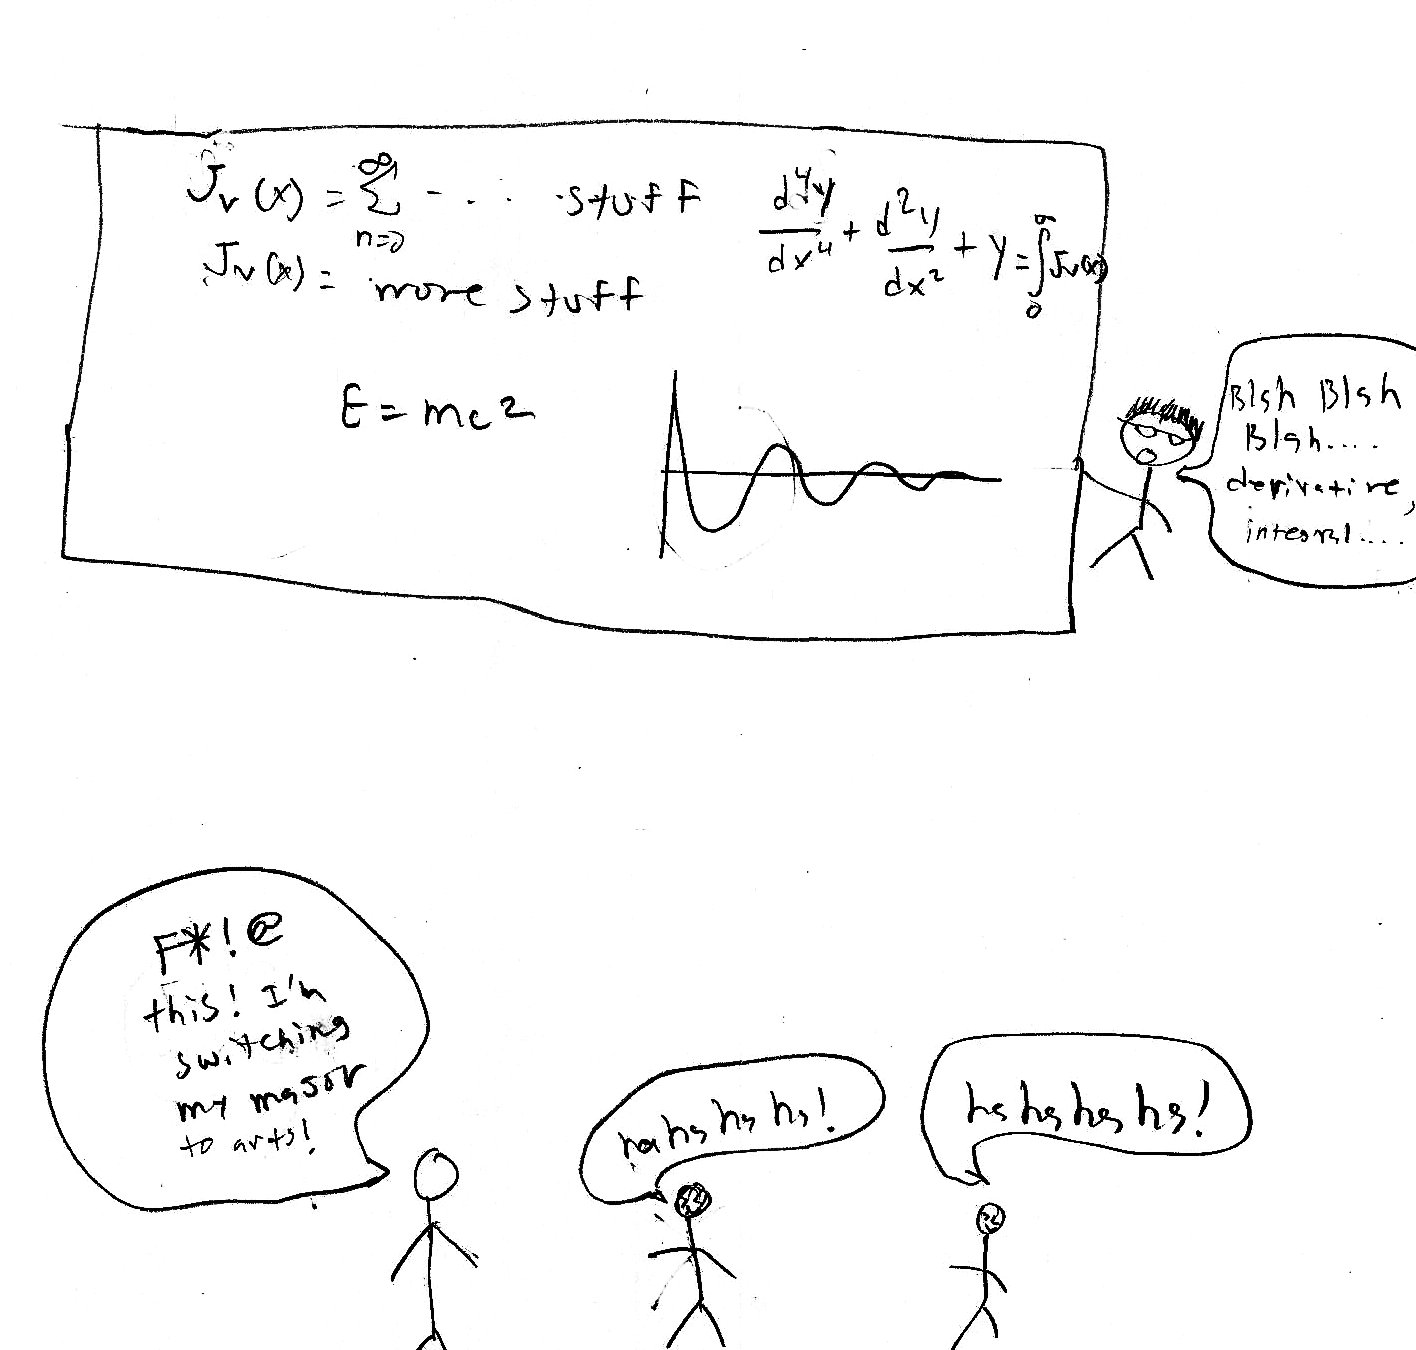 Jᵥ(x) = ∞ Σ n=0 - . . . stuff
Jᵥ(x) = more stuff
d⁴y/dx⁴ + d²y/dx² + y = ∫₀ Jᵥ(x)
E = mc2
Blah Blah
Blah....
derivative,
integral....
F*!@
this! I'm
switching
my major
to arts!
hahahaha!
hahahaha!